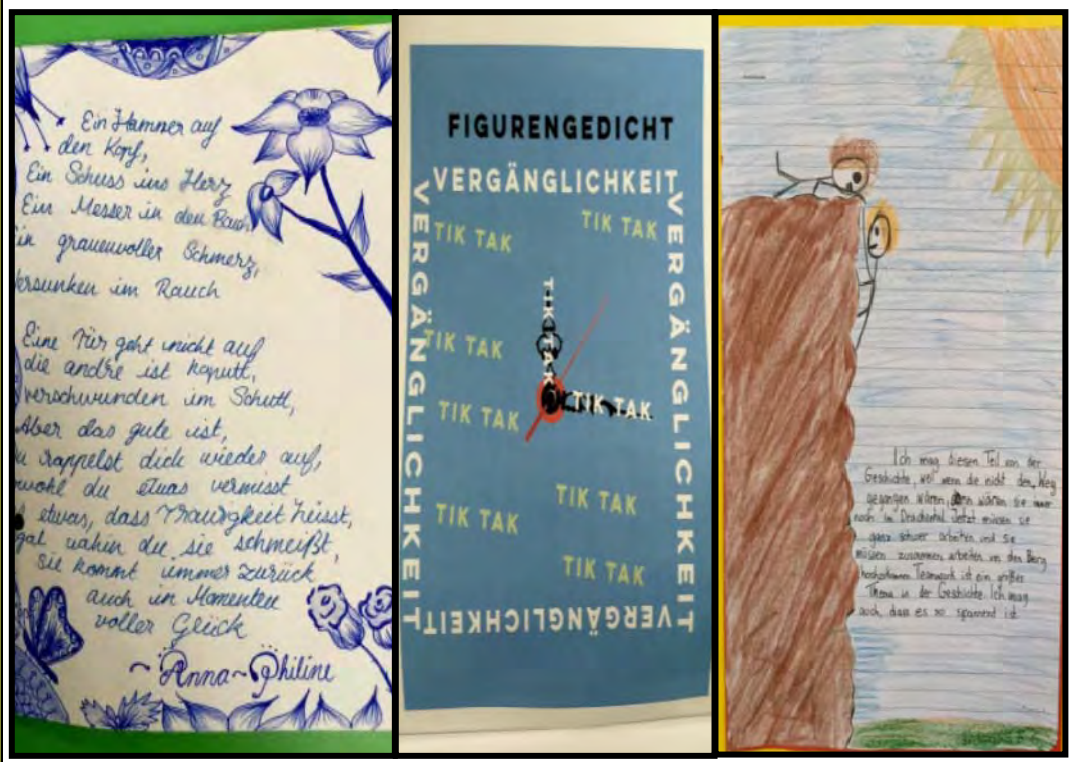 Ein Hammer auf
den Kopf,
Ein Schuss ins Herz
Ein Messer in den
in grauenvoller Schmerz,
ersunken im Rauch
Eine Tür geht nicht auf
die andre ist kaputt,
verschwunden im Schutt,
Aber das gute ist,
u rappelst dich wieder auf,
wohl du etwas vermisst
etwas, dass Traurigkeit heisst,
gal wohin du sie schmeißt,
Sie kommt immer zurück
auch in Momenten
voller Glück
~Anna~Philine
FIGURENGEDICHT
VERGÄNGLICHKEIT
VERGÄNGLICHKEIT
VERGÄNGLICHKEIT
VERGÄNGLICHKEIT
TIK TAK
TIK TAK
TIK TAK
TIK TAK
TIK TAK
TIK TAK
TIK TAK
TIK TAK
TIK TAK
Ich mag diesen Teil von der
Geschichte, weil wenn die nicht den Weg
gegangen wären, dann wären sie immer
noch im Drachental. Jetzt müssen sie
ganz schwer arbeiten und sie
müssen zusammen arbeiten um den Berg
hochzukommen. Teamwork ist ein großes
Thema in der Geschichte. Ich mag
auch, dass es so spannend ist.